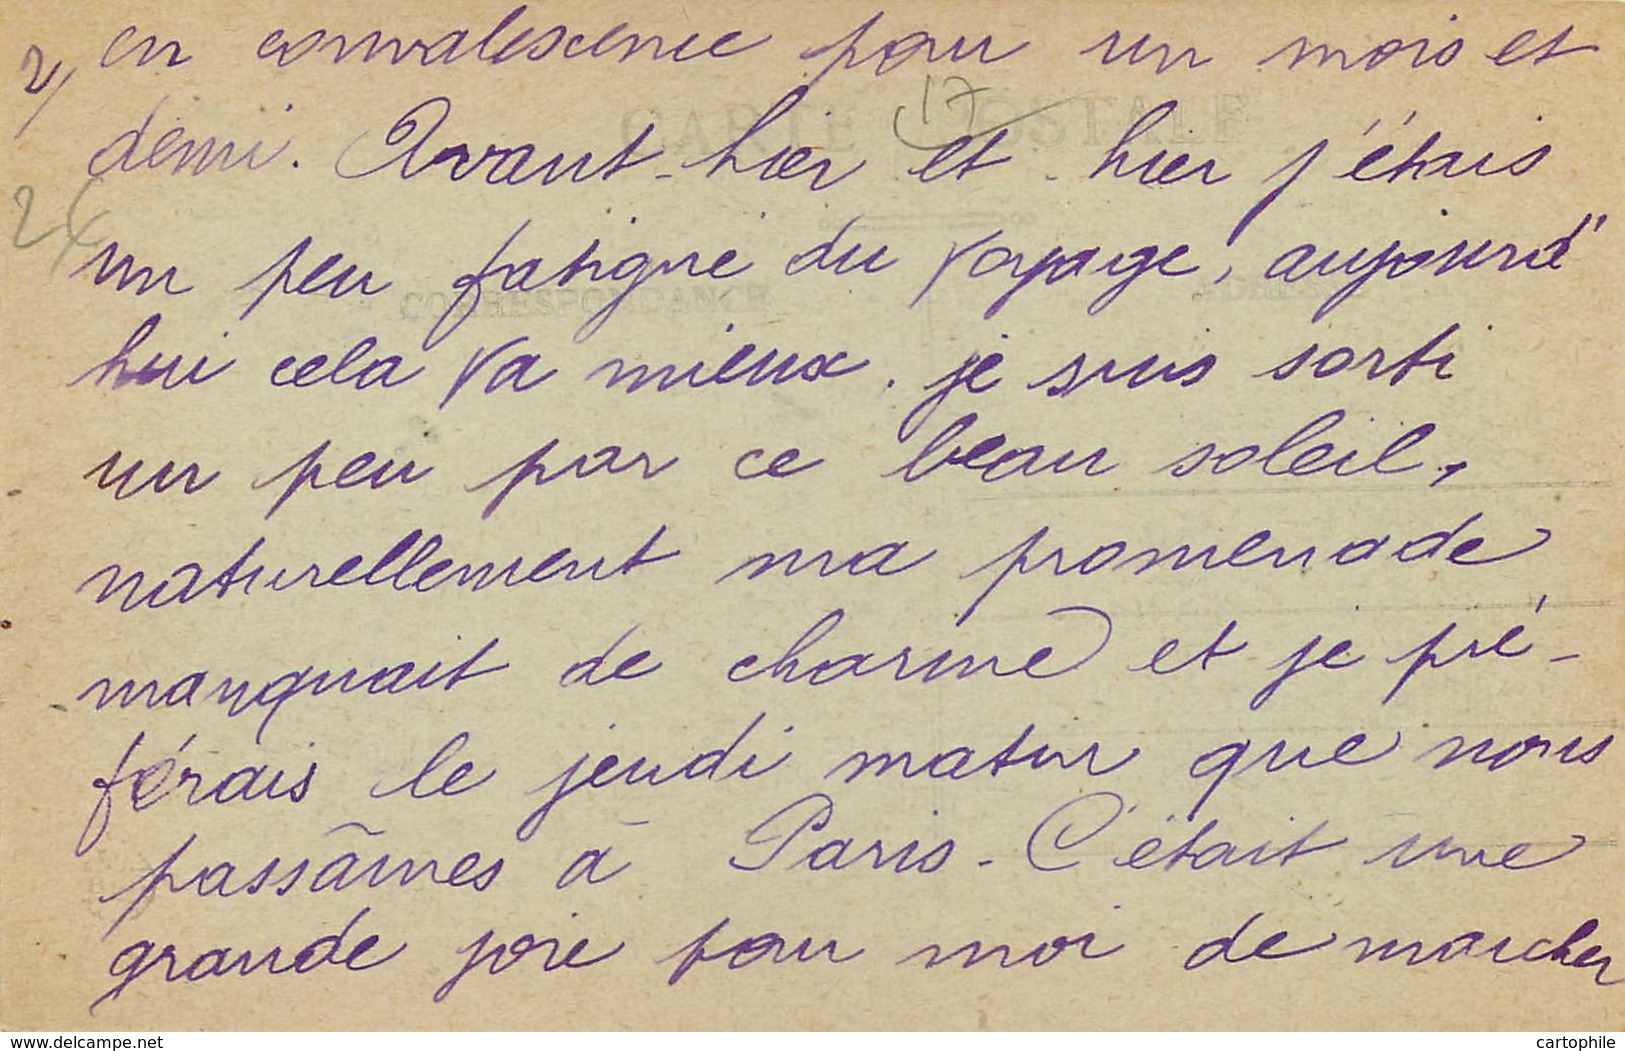 2/ en convalescence pour un mois et
17
CARTE POSTALE
demi. Avant-hier et hier j'étais
24
un peu fatigué du voyage, aujourd'
CORRESPONDANCE ADRESSE
hui cela va mieux. je suis sorti
un peu par ce beau soleil,
naturellement ma promenade
manquait de charme et je pré-
férais le jeudi matin que nous
passâmes à Paris. C'était une
grande joie pour moi de marcher
www.delcampe.net cartophile